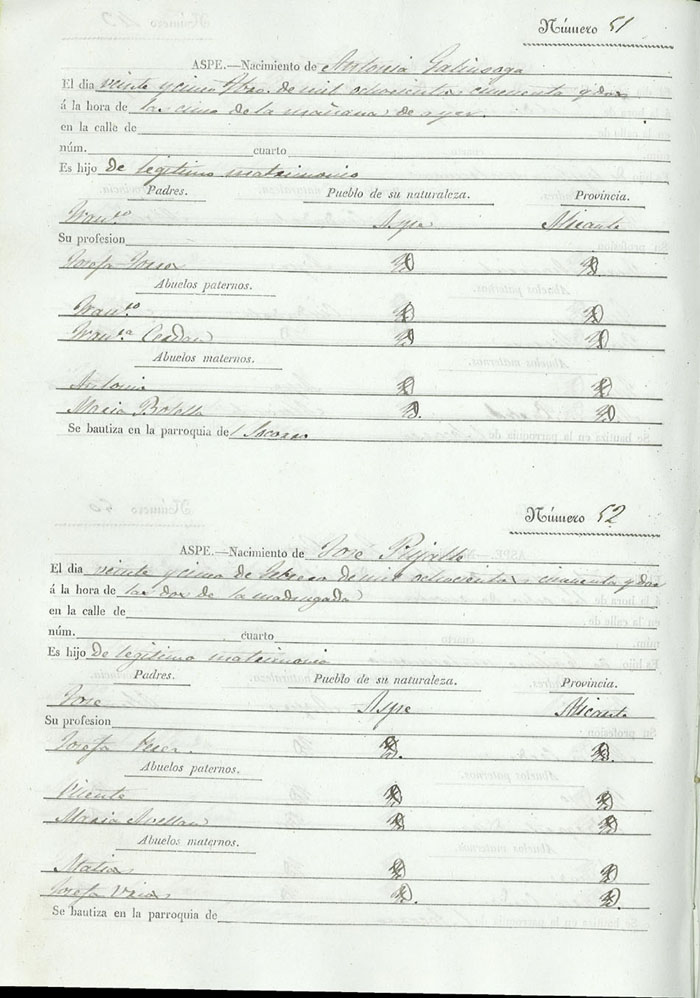 Número 51
ASPE.—Nacimiento de Antonia Galinsoga
El dia veinte y cinco de mil ochocientos cincuenta y dos
á la hora de las cinco de la mañana de ayer.
en la calle de
núm. cuarto
Es hijo de legitimo matrimonio
Padres. Pueblo de su naturaleza. Provincia.
Fran.co Aspe Alicante
Su profesion
Josefa
Abuelos paternos.
Fran.co
Fran.ca Cerdan
Abuelos maternos.
Antonio
Maria Botella
Se bautiza en la parroquia de Socorro
Número 52
ASPE.—Nacimiento de José Pujalte
El dia veinte y cinco de Febrero de mil ochocientos cincuenta y dos
á la hora de las dos de la madrugada
en la calle de
núm. cuarto
Es hijo de legitimo matrimonio
Padres. Pueblo de su naturaleza. Provincia.
José Aspe Alicante
Su profesion
Josefa
Abuelos paternos.
Vicente
Maria Avellan
Abuelos maternos.
Matias
Josefa
Se bautiza en la parroquia de